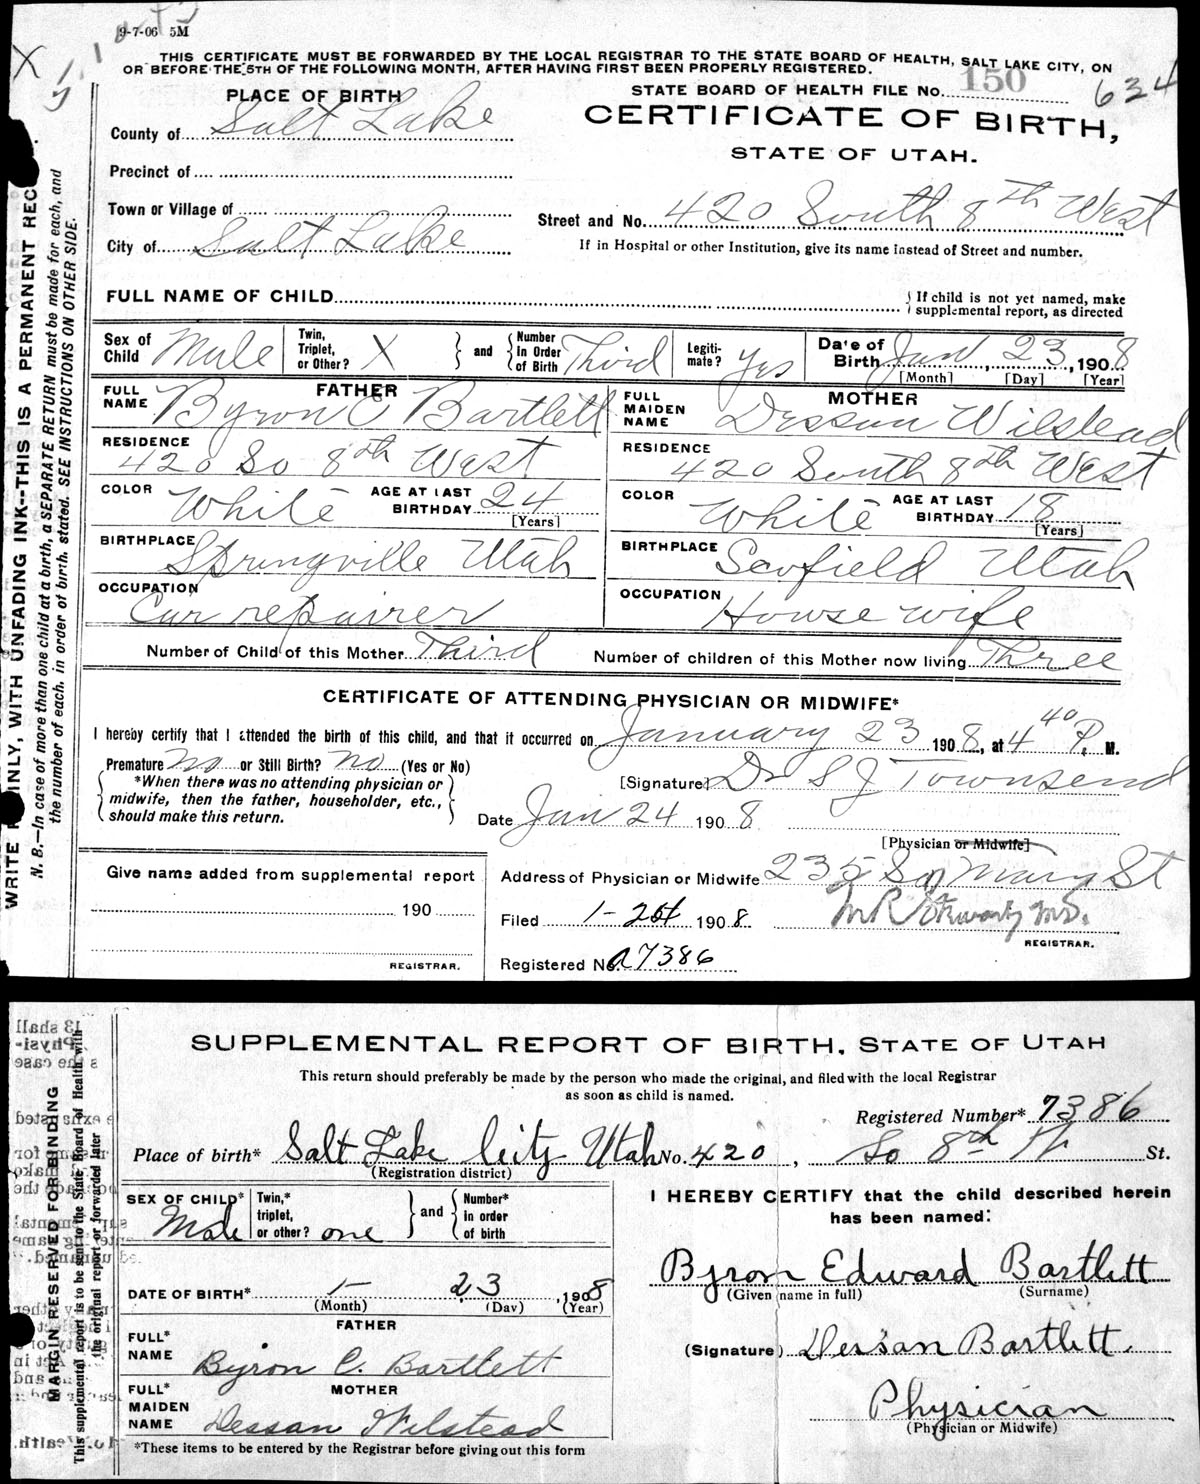 9-7-06 5M
THIS CERTIFICATE MUST BE FORWARDED BY THE LOCAL REGISTRAR TO THE STATE BOARD OF HEALTH, SALT LAKE CITY, ON
OR BEFORE THE 5TH OF THE FOLLOWING MONTH, AFTER HAVING FIRST BEEN PROPERLY REGISTERED.
STATE BOARD OF HEALTH FILE NO. 150
634
PLACE OF BIRTH
CERTIFICATE OF BIRTH,
STATE OF UTAH.
County of Salt Lake
Precinct of
Town or Village of
City of Salt Lake
Street and No. 420 South 8th West
If in Hospital or other Institution, give its name instead of Street and number.
FULL NAME OF CHILD
If child is not yet named, make
supplemental report, as directed
Sex of Child Male
Twin, Triplet, or Other? X
and
Number In Order of Birth Third
Legitimate? Yes
Date of Birth Jan 23, 1908
[Month] [Day] [Year]
FATHER
FULL NAME Byron C Bartlett
RESIDENCE 420 So 8th West
COLOR White AGE AT LAST BIRTHDAY 24
[Years]
BIRTHPLACE Springville Utah
OCCUPATION Car repairer
MOTHER
FULL MAIDEN NAME Dessan Wilstead
RESIDENCE 420 South 8th West
COLOR White AGE AT LAST BIRTHDAY 18
[Years]
BIRTHPLACE Scofield Utah
OCCUPATION House wife
Number of Child of this Mother Third Number of children of this Mother now living Three
CERTIFICATE OF ATTENDING PHYSICIAN OR MIDWIFE*
I hereby certify that I attended the birth of this child, and that it occurred on January 23 1908, at 4 40 P. M.
Premature No or Still Birth? No (Yes or No)
*When there was no attending physician or
midwife, then the father, householder, etc.,
should make this return.
[Signature] Dr S J Townsend
Date Jan 24 1908
[Physician or Midwife]
Give name added from supplemental report
190
REGISTRAR.
Address of Physician or Midwife 235 So Main St
Filed 1-25 1908
M.D.
REGISTRAR.
Registered No. a7386
WRITE PLAINLY, WITH UNFADING INK--THIS IS A PERMANENT REC
N. B.--In case of more than one child at a birth, a SEPARATE RETURN must be made for each, and
the number of each, in order of birth, stated. SEE INSTRUCTIONS ON OTHER SIDE.
SUPPLEMENTAL REPORT OF BIRTH, STATE OF UTAH
This return should preferably be made by the person who made the original, and filed with the local Registrar
as soon as child is named.
Registered Number* 7386
Place of birth* Salt Lake City Utah No. 420, So 8th W St.
(Registration district)
SEX OF CHILD* Male
Twin,* triplet, or other? one
and
Number* in order of birth
DATE OF BIRTH* 1- 23, 1908
(Month) (Day) (Year)
FATHER
FULL* NAME Byron C. Bartlett
MOTHER
FULL* MAIDEN NAME Dessan Wilstead
*These items to be entered by the Registrar before giving out this form
I HEREBY CERTIFY that the child described herein
has been named:
Byron Edward Bartlett
(Given name in full) (Surname)
(Signature) Dessan Bartlett.
Physician
(Physician or Midwife)
MARGIN RESERVED FOR BINDING
This supplemental report is to be sent to the State Board of Health with
the original report or forwarded later